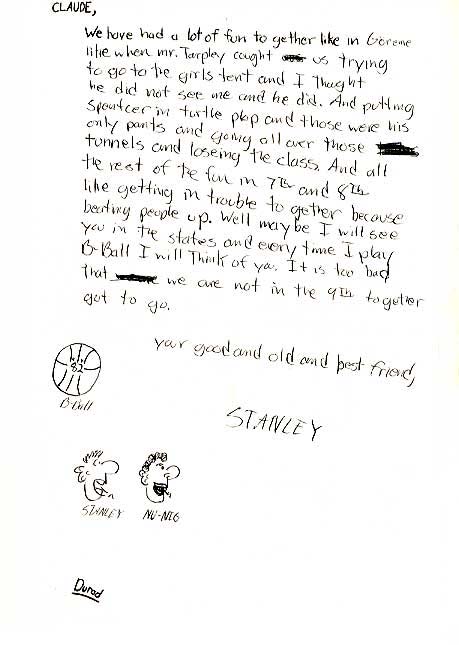 CLAUDE,
We have had a lot of fun to gether like in Goreme
like when mr. Tarpley caught us trying
to go to the girls tent and I thaght
he did not see me and he did. And putting
Spentcer in turtle plop and those were his
only pants and going all over those
tunnels and loseing the class. And all
the rest of the fun in 7th and 8th
like getting in trouble to gether because
beating people up. Well maybe I will see
you in the states and every time I play
B-Ball I will Think of ya. It is too bad
that we are not in the 9th together
got to go.
your good and old and best friend,
STANLEY
82
B-Ball
STANLEY
Durad